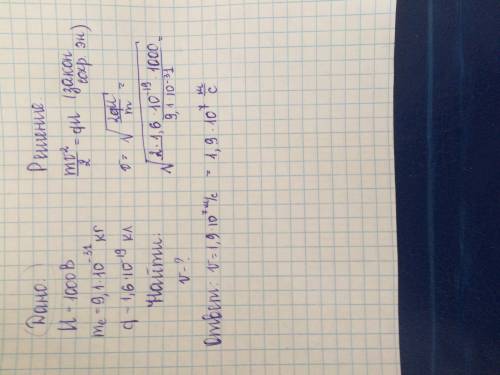 Дано:
U = 1000 В
mₑ = 9,1·10⁻³¹ кг
q = 1,6·10⁻¹⁹ кл
Найти:
v - ?
Решение
mv²/2 = qU (закон сохр. эн)
v = √(2qU/m) =
√(2·1,6·10⁻¹⁹·1000/9,1·10⁻³¹) =
= 1,9·10⁷ м/с
Ответ: v = 1,9·10⁷ м/с